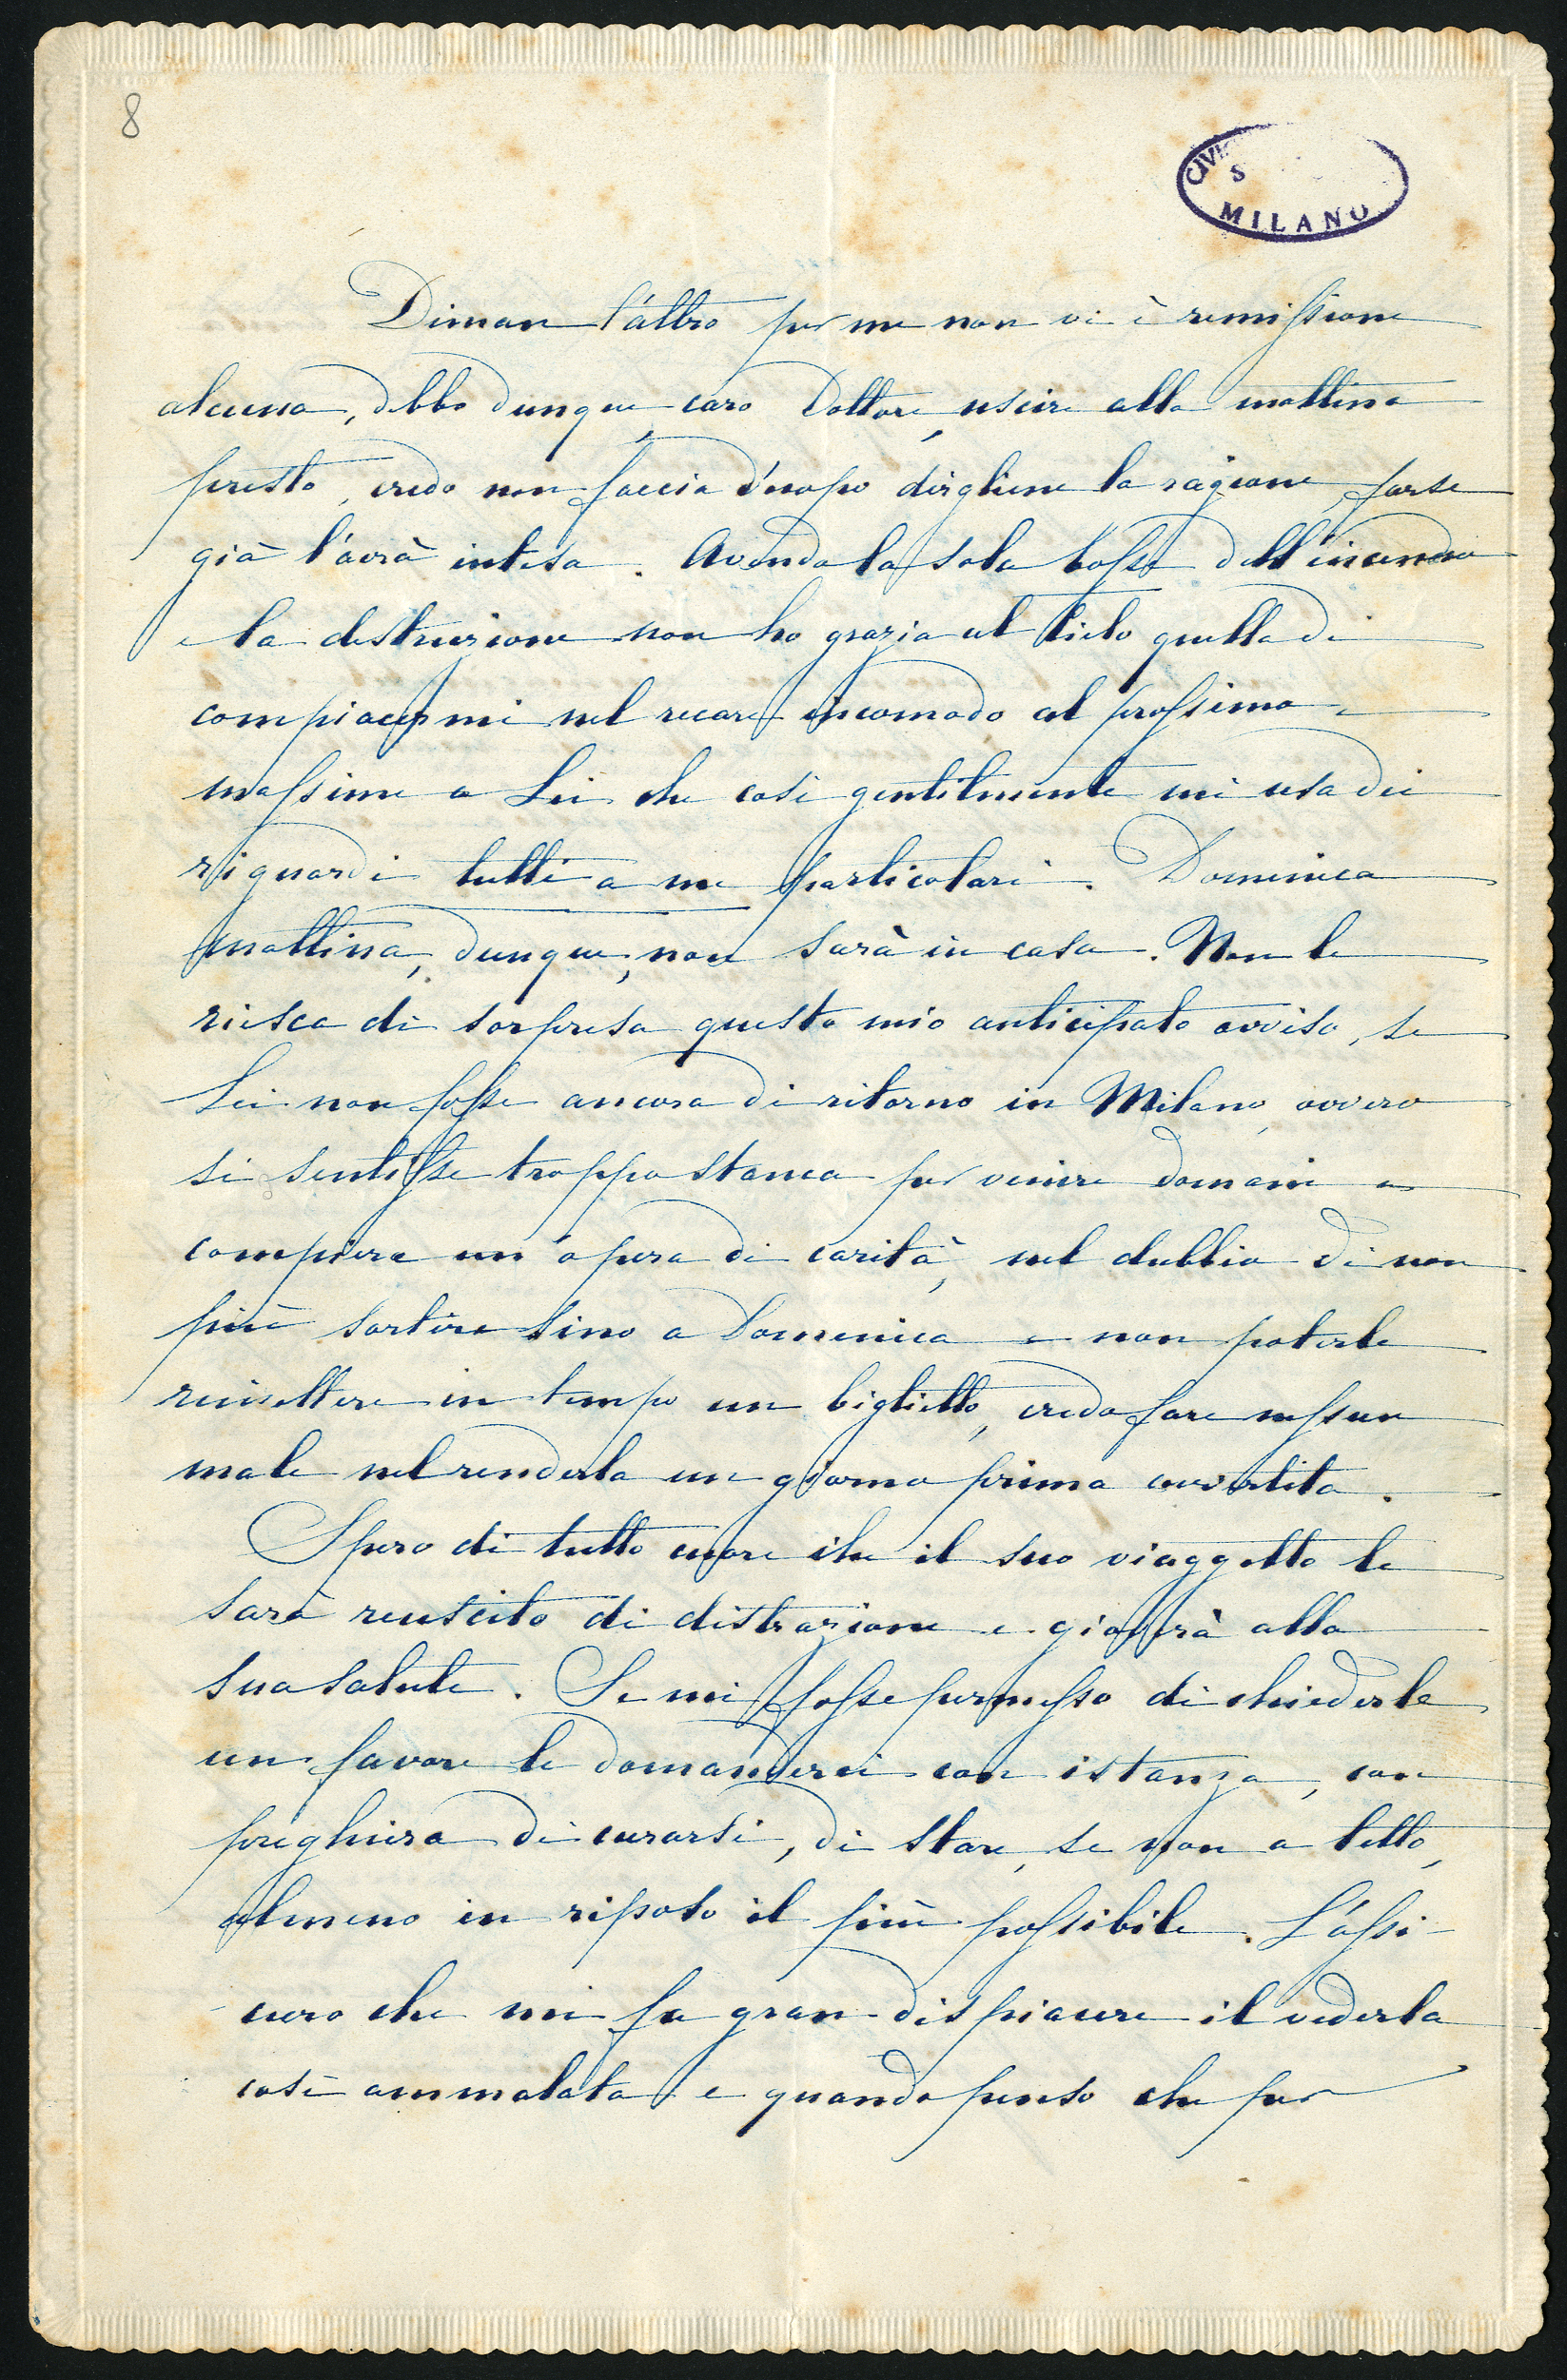 8
CIVIC
S
MILANO
Diman l'altro per me non vi è remissione
alcuna, debbo dunque, caro Dottore, uscire alla mattina
presto, credo non faccia d'uopo dirgliene la ragione, forse
già l'avrà intesa. Avendo la sola tosse dell'incendio
e la distruzione non ho grazia al Cielo quella di
compiacermi nel recare incomodo al prossimo e
massime a Lei che così gentilmente mi usa dei
riguardi tutti a me particolari. Domenica
mattina, dunque, non sarà in casa. Non le
riesca di sorpresa questo mio anticipato avviso, se
Lei non fosse ancora di ritorno in Milano, ovvero
si sentisse troppo stanca per venire domani a
compiere un'opera di carità, nel dubbio di non
più sortire sino a Domenica e non poterle
rimettere in tempo un biglietto, credo fare nessun
male nel renderla un giorno prima avvertita.
Spero di tutto cuore che il suo viaggetto le
sarà reuscito di distrazione e gioverà alla
sua salute. Se mi fosse permesso di chiederle
un favore le domanderei con istanza, con
preghiera di curarsi, di stare, se non a letto,
almeno in riposo il più possibile. L'assi-
curo che mi fa gran dispiacere il vederla
così ammalata e quando penso che per